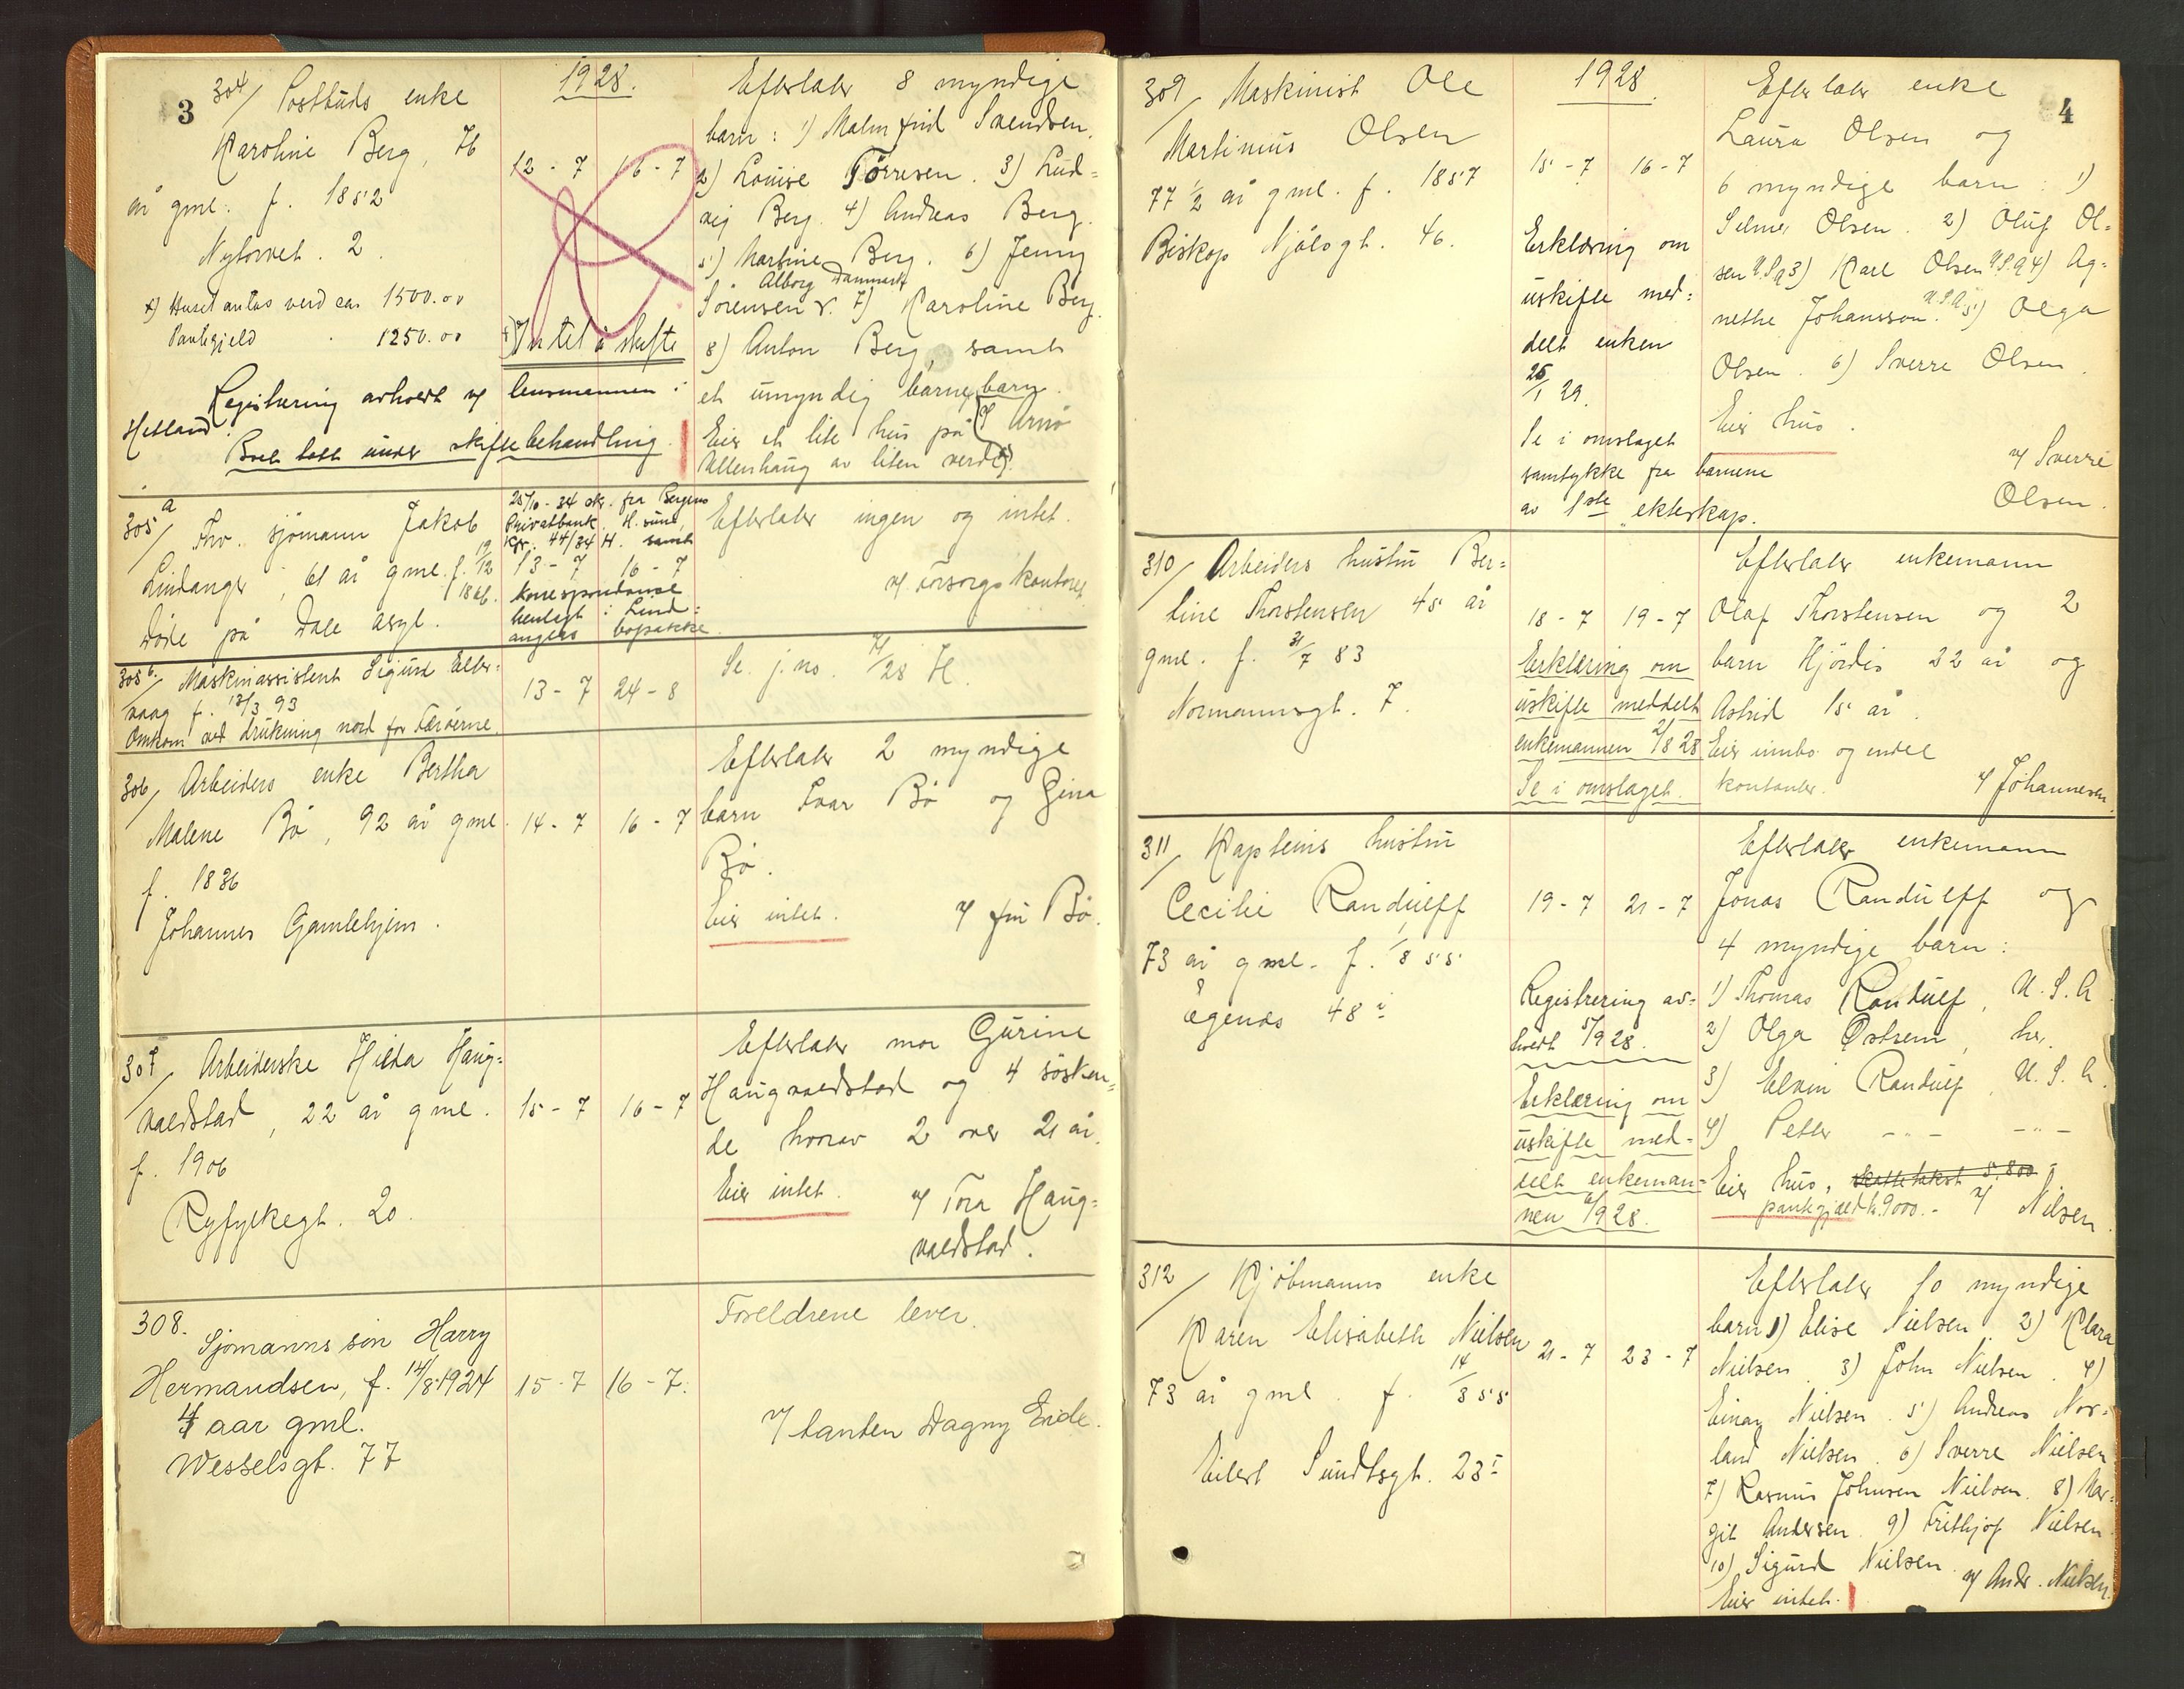 3
304/ Postbuds enke
Karoline Berg, 76
år gml. f. 1852
Nytorvet. 2
x) Huset antas verd ca. 1500.00
Pantegjeld 1250.00
1928.
12 - 7 16 - 7
x) Intet å skifte
Registrering avholdt v/ lensmannen i
Hetland.
Boet tatt under skiftebehandling.
Efterlater 8 myndige
barn: 1) Malmfrid Svendsen.
2) Louise Tørresen. 3) Lud=
vig Berg. 4) Andreas Berg.
5) Martine Berg. 6) Jenny
Alborg Danmark
Sørensen 7) Karoline Berg.
8) Anton Berg, samt
et umyndig barnebarn.
Eier et lite hus på
Ullenhaug av liten verdi x).
305 a/ Fhv. sjømann Jakob
Lindanger, 61 år gml. f. 19/12
1866.
Døde på Dale asyl.
25/10 - 34 skr. fra Bergens
Privatbank, H.sund,
Kfr. 44/34 H. samt
13 - 7 16 - 7
korrespondanse
henlagt i Lind=
angers bopakke.
Efterlater ingen og intet.
v/ Forsorgskontoret
305 b./ Maskinassistent Sigurd Elter=
vaag f. 13/3 93
Omkom ved drukning nord for Færøerne.
13 - 7 24 - 8
Se j.no. 71/28 H.
306/ Arbeiders enke Bertha
Malene Bø, 92 år gml.
f. 1836
Johannes Gamlehjem.
14 - 7 16 - 7
Efterlater 2 myndige
barn Ivar Bø og Gina
Bø.
Eier intet. v/ frk Bø.
307/ Arbeiderske Hilda Haug=
valdstad, 22 år gml.
f. 1906
Ryfylkegt. 20.
15 - 7 16 - 7
Efterlater mor Gurine
Haugvaldstad og 4 søsken=
de hvorav 2 over 21 år.
Eier intet. v/ Tora Haug=
valdstad.
308.
Sjømanns søn Harry
Hermandsen, f. 14/8 1924
4 aar gml.
Wesselsgt. 77
15 - 7 16 - 7.
Foreldrene lever.
v/ tanten Dagny Eide.
4
309/ Maskinist Ole
Martinius Olsen
77 1/2 år gml. f. 1857
Biskop Njålsgt. 46.
1928.
15 - 7 16 - 7
Erklæring om
uskifte med=
delt enken
25/1 29.
Se i omslaget
samtykke fra barnene
av 1ste ekteskap.
Efterlater enke
Laura Olsen og
6 myndige barn: 1)
Selmer Olsen. 2) Oluf Ol=
sen U.S.A 3) Karl Olsen U.S.A 4) Ag=
nethe Johansson. U.S.A. 5) Olga
Olsen. 6) Sverre Olsen.
Eier hus.
v/ Sverre
Olsen.
310/ Arbeiders hustru Ber=
tine Thorstensen 45 år
gml. f. 31/7 83
Normannsgt. 7.
18 - 7 19 - 7
Erklæring om
uskifte meddelt
enkemannen 2/8 28
Se i omslaget.
Efterlater enkemann
Olaf Thorstensen og 2
barn Hjørdis 22 år og
Astrid 15 år.
Eier innbo og endel
kontanter. v/ Johannesen.
311/ Kapteins hustru
Cecilie Randulff
73 år gml. f. 1/8 55.
Ågenæs 48 i
19 - 7 21 - 7
Registrering av=
holdt 5/9 28.
Erklæring om
uskifte med=
delt enkeman=
nen 6/9 28.
Efterlater enkemann
Jonas Randulff og
4 myndige barn:
1) Thomas Randulf, U.S.A
2) Olga Østrem, her.
3) Elvin Randulf, U.S.A.
4) Petter - " - - " -
Eier hus, skattetakst 5,800
pantegjeld kr. 9000.- v/ Nilsen.
312/ Kjøbmanns enke
Karen Elisabeth Nielsen
73 år gml. f. 14/3 55
Eilert Sundtsgt. 23 I
21 - 7 23 - 7
Efterlater 10 myndige
barn 1) Elise Nielsen. 2) Klara
Nielsen. 3) John Nielsen. 4)
Einar Nielsen. 5) Andreas Nor=
land Nielsen. 6) Sverre Nielsen
7) Rasmus Johnsen Nielsen. 8) Mar=
git Andersen. 9) Frithjof Nielsen
10) Sigurd Nielsen. v/ Andr. Nielsen.
Eier intet.